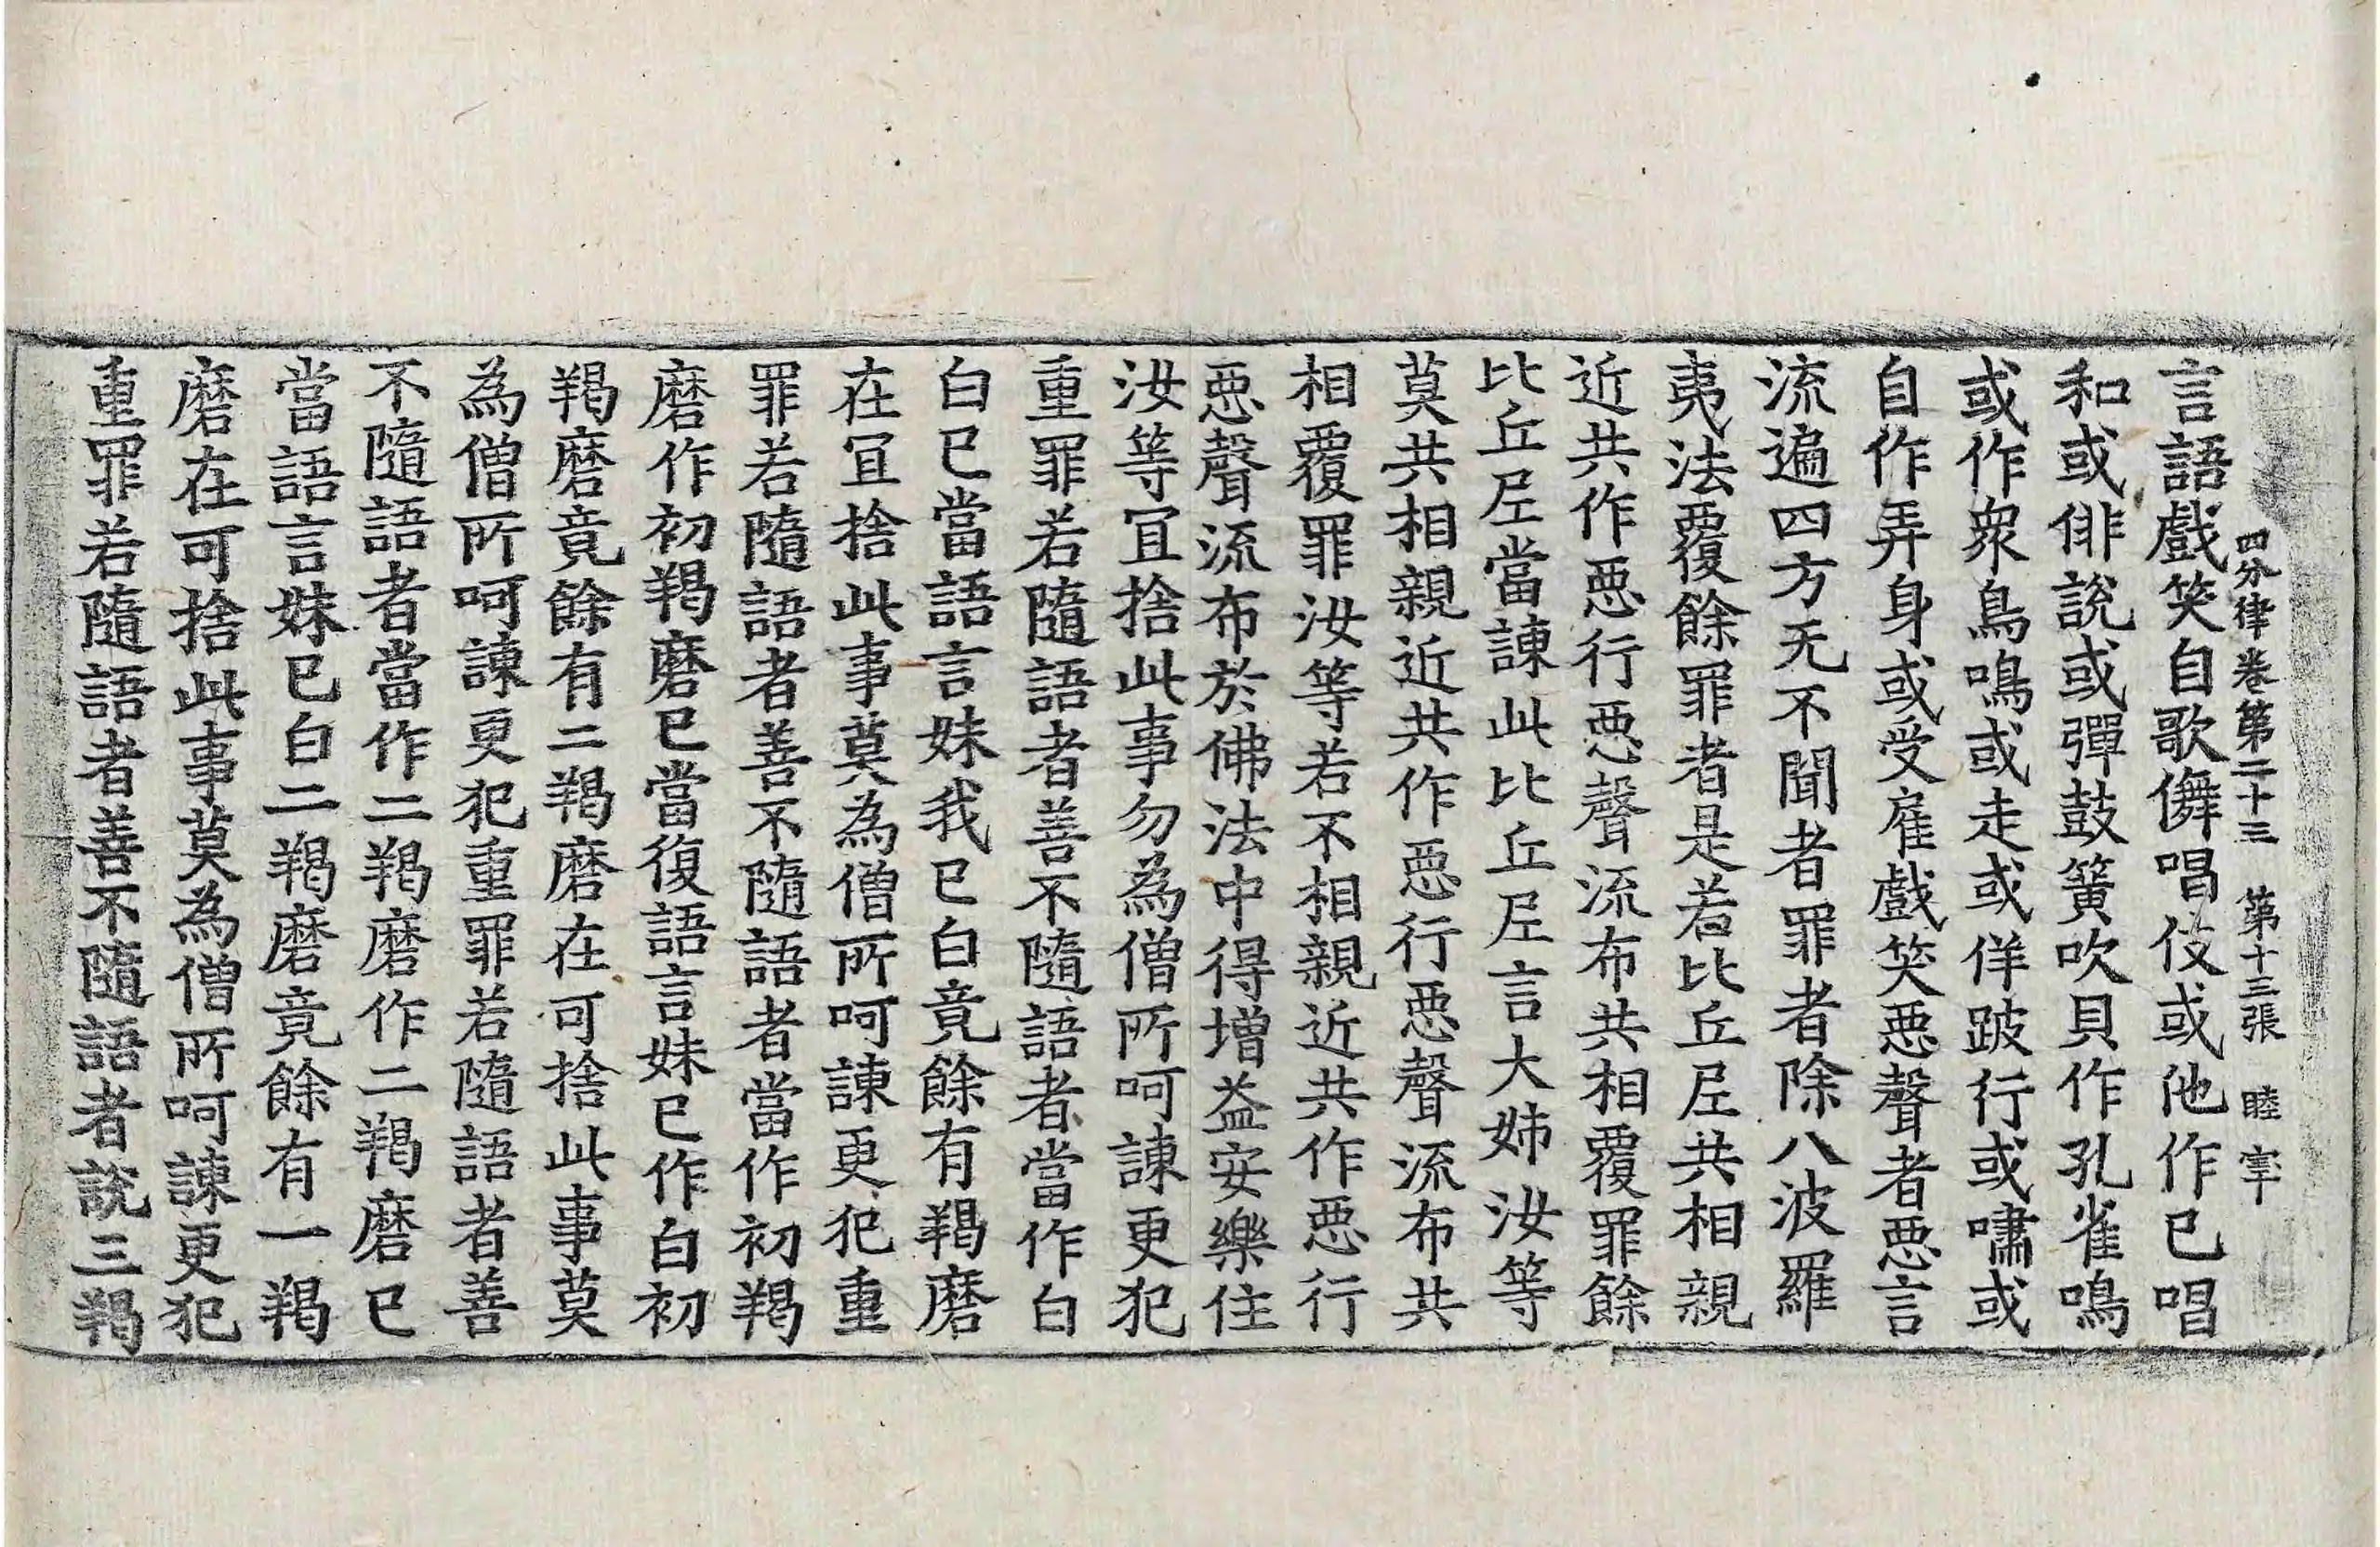 四分律卷第二十三　第十三張　睦
言語戲笑自歌儛唱伎或他作已唱
和或俳說或彈鼓簧吹貝作孔雀鳴
或作衆鳥鳴或走或佯跛行或嘯或
自作弄身或受雇戲笑惡聲者惡言
流遍四方无不聞者罪者除八波羅
夷法覆餘罪者是若比丘尼共相親
近共作惡行惡聲流布共相覆罪餘
比丘尼當諫此比丘尼言大姊汝等
莫共相親近共作惡行惡聲流布共
相覆罪汝等若不相親近共作惡行
惡聲流布於佛法中得增益安樂住
汝等冝捨此事勿為僧所呵諫更犯
重罪若隨語者善不隨語者當作白
白已當語言妹我已白竟餘有羯磨
在冝捨此事莫為僧所呵諫更犯重
罪若隨語者善不隨語者當作初羯
磨作初羯磨已當復語言妹已作白初
羯磨竟餘有二羯磨在可捨此事莫
為僧所呵諫更犯重罪若隨語者善
不隨語者當作二羯磨作二羯磨已
當語言妹已白二羯磨竟餘有一羯
磨在可捨此事莫為僧所呵諫更犯
重罪若隨語者善不隨語者說三羯